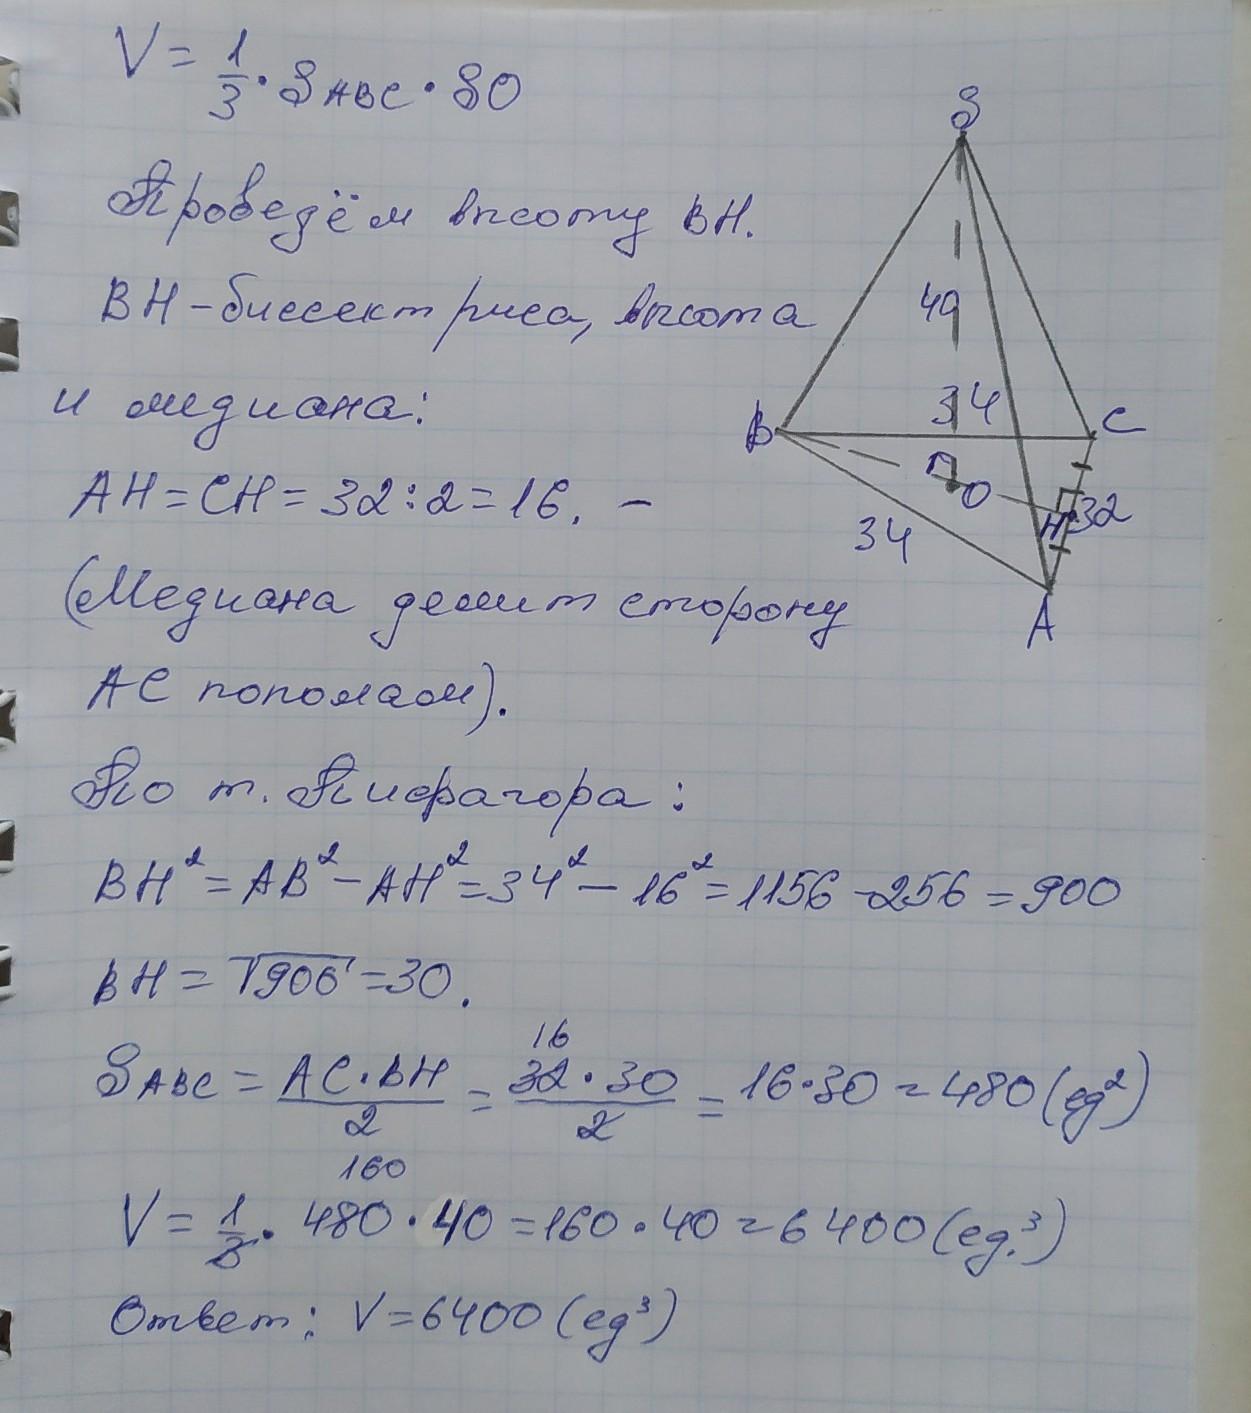 V = 1/3 · S ABC · SO
Проведём высоту BH.
BH - биссектриса, высота
и медиана:
AH = CH = 32 : 2 = 16. -
(Медиана делит сторону
AC пополам).
По т. Пифагора:
BH² = AB² - AH² = 34² - 16² = 1156 - 256 = 900
BH = √900 = 30.
S ABC = AC · BH / 2 = 32 · 30 / 2 = 16 · 30 = 480 (ед²)
16
160
V = 1/3 · 480 · 40 = 160 · 40 = 6400 (ед.³)
Ответ: V = 6400 (ед³)
S
40
34
B
C
O
H
32
34
A